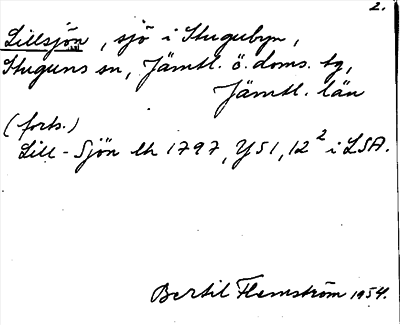 2.
Lillsjön, sjö i Stugubyn,
Stuguns sn, Jämtl. ö. doms. tg,
Jämtl. län
(forts.)
Lill-Sjön lh 1797, Y51, 12² i LSA.
Bertil Flemström 1954.